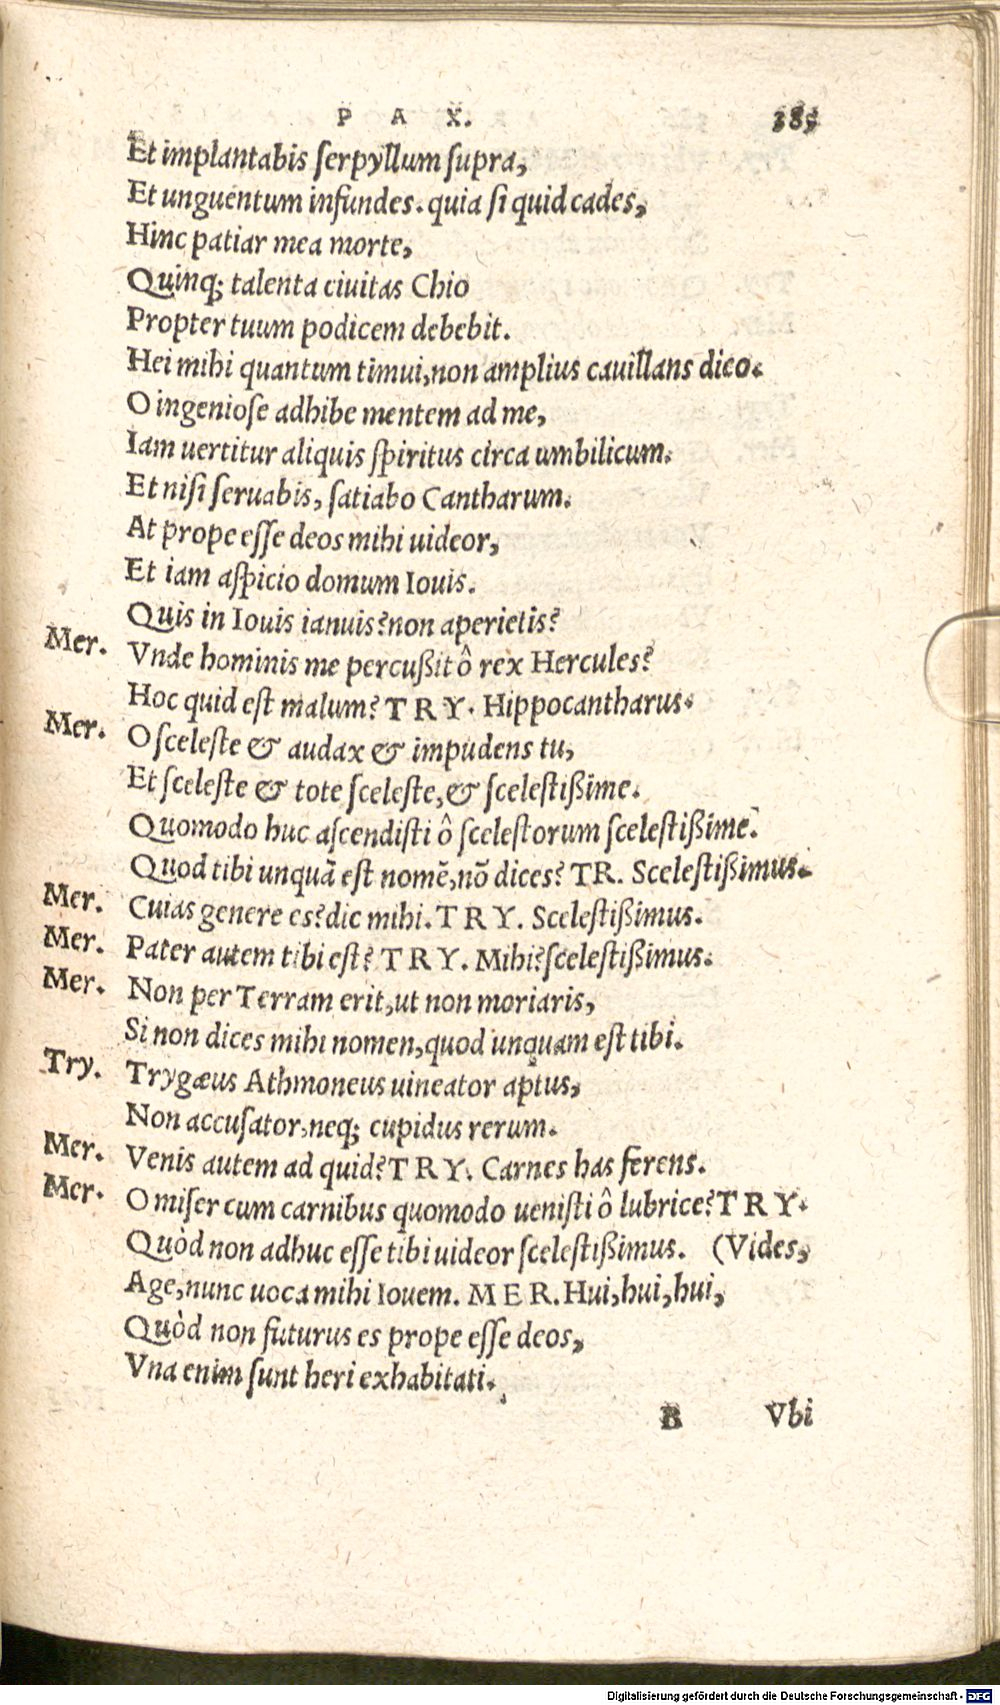 P A X. 385
Et implantabis serpyllum supra,
Et unguentum infundes. quia si quid cades,
Hinc patiar mea morte,
Quinq; talenta ciuitas Chio
Propter tuum podicem debebit.
Hei mihi quantum timui, non amplius cauillans dico.
O ingeniose adhibe mentem ad me,
Iam uertitur aliquis spiritus circa umbilicum.
Et nisi seruabis, satiabo Cantharum.
At prope esse deos mihi uideor,
Et iam aspicio domum Iouis.
Quis in Iouis ianuis? non aperietis?
Mer. Vnde hominis me percußit ô rex Hercules?
Hoc quid est malum? T R Y. Hippocantharus.
Mer. O sceleste & audax & impudens tu,
Et sceleste & tote sceleste, & scelestißime.
Quomodo huc ascendisti ô scelestorum scelestißime?
Quod tibi unquã est nomẽ, nõ dices? TR. Scelestißimus.
Mer. Cuias genere es? dic mihi. T R Y. Scelestißimus.
Mer. Pater autem tibi est? T R Y. Mihi? scelestißimus.
Mer. Non per Terram erit, ut non moriaris,
Si non dices mihi nomen, quod unquam est tibi.
Try. Trygæus Athmoneus uineator aptus,
Non accusator, neq; cupidus rerum.
Mer. Venis autem ad quid? T R Y. Carnes has ferens.
Mer. O miser cum carnibus quomodo uenisti ô lubrice? T R Y.
Quòd non adhuc esse tibi uideor scelestißimus. (Vides,
Age, nunc uoca mihi Iouem. M E R. Hui, hui, hui,
Quòd non futurus es prope esse deos,
Vna enim sunt heri exhabitati.
B Vbi
Digitalisierung gefördert durch die Deutsche Forschungsgemeinschaft - DFG